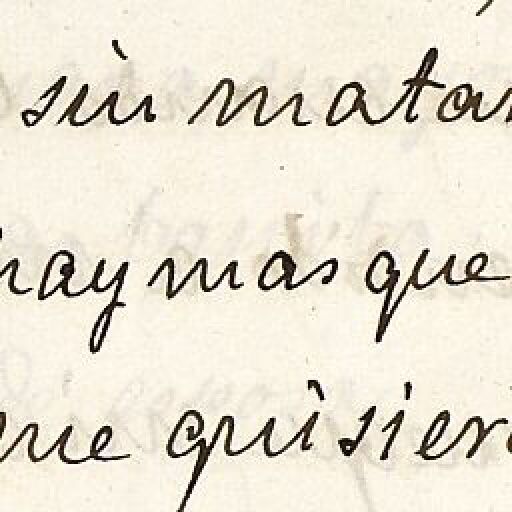 sin matar
hay mas que
que quisiera